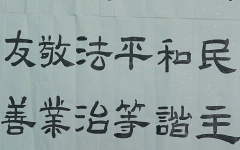 民主
和諧
平等
法治
敬業
友善